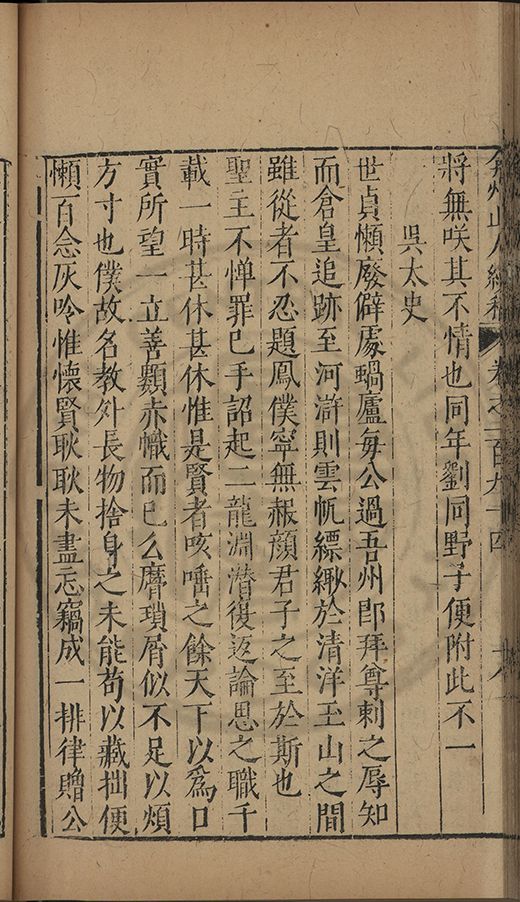 弇州山人續稿 卷之一百九十四 十八
將無咲其不情也同年劉同野子便附此不一
吳太史
世貞懶廢僻處蝸廬毎公過吾州郎拜尊刺之辱知
而倉皇追跡至河滸則雲帆縹緲於清洋玉山之間
雖從者不忍題鳳僕寧無赧顔君子之至於斯也
聖主不憚罪巳手詔起二龍淵潜復返論思之職千
載一時甚休甚休惟是賢者咳唾之餘天下以爲口
實所望一立善類赤幟而巳么麿瑣屑似不足以煩
方寸也僕故名教外長物捨身之未能苟以藏拙便
懶百念灰冷惟懐賢耿耿未盡忘竊成一排律贈公